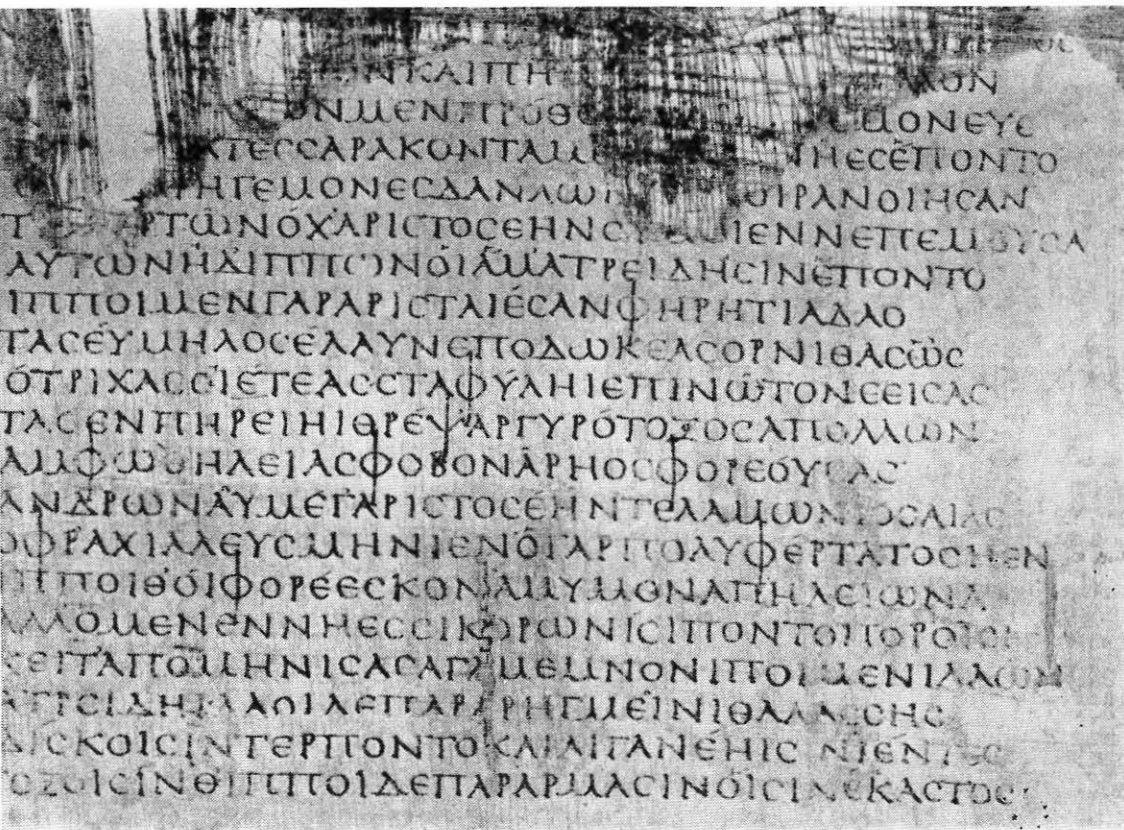 ΘΟ
ΝΚΑΙΠΗ ΜΟΝ
ΩΝΜΕΝΠΡΟΘΟ ΜΟΝΕΥΕ
ΑΤΕϹϹΑΡΑΚΟΝΤΑΜΕ ΝΗΕϹΕΠΟΝΤΟ
ΗΓΕΜΟΝΕϹΔΑΝΑΩΝ ΟΙΡΑΝΟΙΗϹΑΝ
Τ ΡΤΩΝΟΧΑΡΙϹΤΟϹΕΗΝϹ ΙΕΝΝΕΠΕΜΟΥϹΑ
ΑΥΤΩΝΗΔΙΠΠΩΝΟΙΑΜΑΤΡΕΙΔΗϹΙΝΕΠΟΝΤΟ
ΙΠΠΟΙΜΕΝΓΑΡΑΡΙϹΤΑΙΕϹΑΝΦΗΡΗΤΙΑΔΑΟ
ΤΑϹΕΥΜΗΛΟϹΕΛΑΥΝΕΠΟΔΩΚΕΑϹΟΡΝΙΘΑϹΩϹ
ΟΤΡΙΧΑϹΟΙΕΤΕΑϹϹΤΑΦΥΛΗΙΕΠΙΝΩΤΟΝΕΕΙϹΑϹ
ΤΑϹΕΝΠΗΡΕΙΗΙΘΡΕΨΑΡΓΥΡΟΤΟΞΟϹΑΠΟΛΛΩΝ
ΑΜΦΩΘΗΛΕΙΑϹΦΟΒΟΝΑΡΗΟϹΦΟΡΕΟΥϹΑϹ
ΑΝΔΡΩΝΑΥΜΕΓΑΡΙϹΤΟϹΕΗΝΤΕΛΑΜΩΝΙΟϹΑΙΑϹ
ΟΦΡΑΧΙΛΛΕΥϹΜΗΝΙΕΝΟΓΑΡΠΟΛΥΦΕΡΤΑΤΟϹΗΕΝ
ΙΠΠΟΙΘΟΙΦΟΡΕΕϹΚΟΝΑΜΥΜΟΝΑΠΗΛΕΙΩΝΑ
ΑΛΛΟΜΕΝΕΝΝΗΕϹϹΙΚΟΡΩΝΙϹΙΠΟΝΤΟΠΟΡΟΙϹΙ
ΚΕΙΤΑΠΟΜΗΝΙϹΑϹΑΓΑΜΕΜΝΟΝΙΠΟΙΜΕΝΙΛΑΩΝ
ΑΤΡΕΙΔΗΙΛΑΟΙΔΕΠΑΡΑΡΗΓΜΕΙΝΙΘΑΛΑϹϹΗϹ
ΔΙϹΚΟΙϹΙΝΤΕΡΠΟΝΤΟΚΑΙΑΙΓΑΝΕΗΙϹ ΝΙΕΝΤΕϹ
ΤΟΞΟΙϹΙΝΘΙΠΠΟΙΔΕΠΑΡΑΡΜΑϹΙΝΟΙϹΙΝΕΚΑϹΤΟϹ